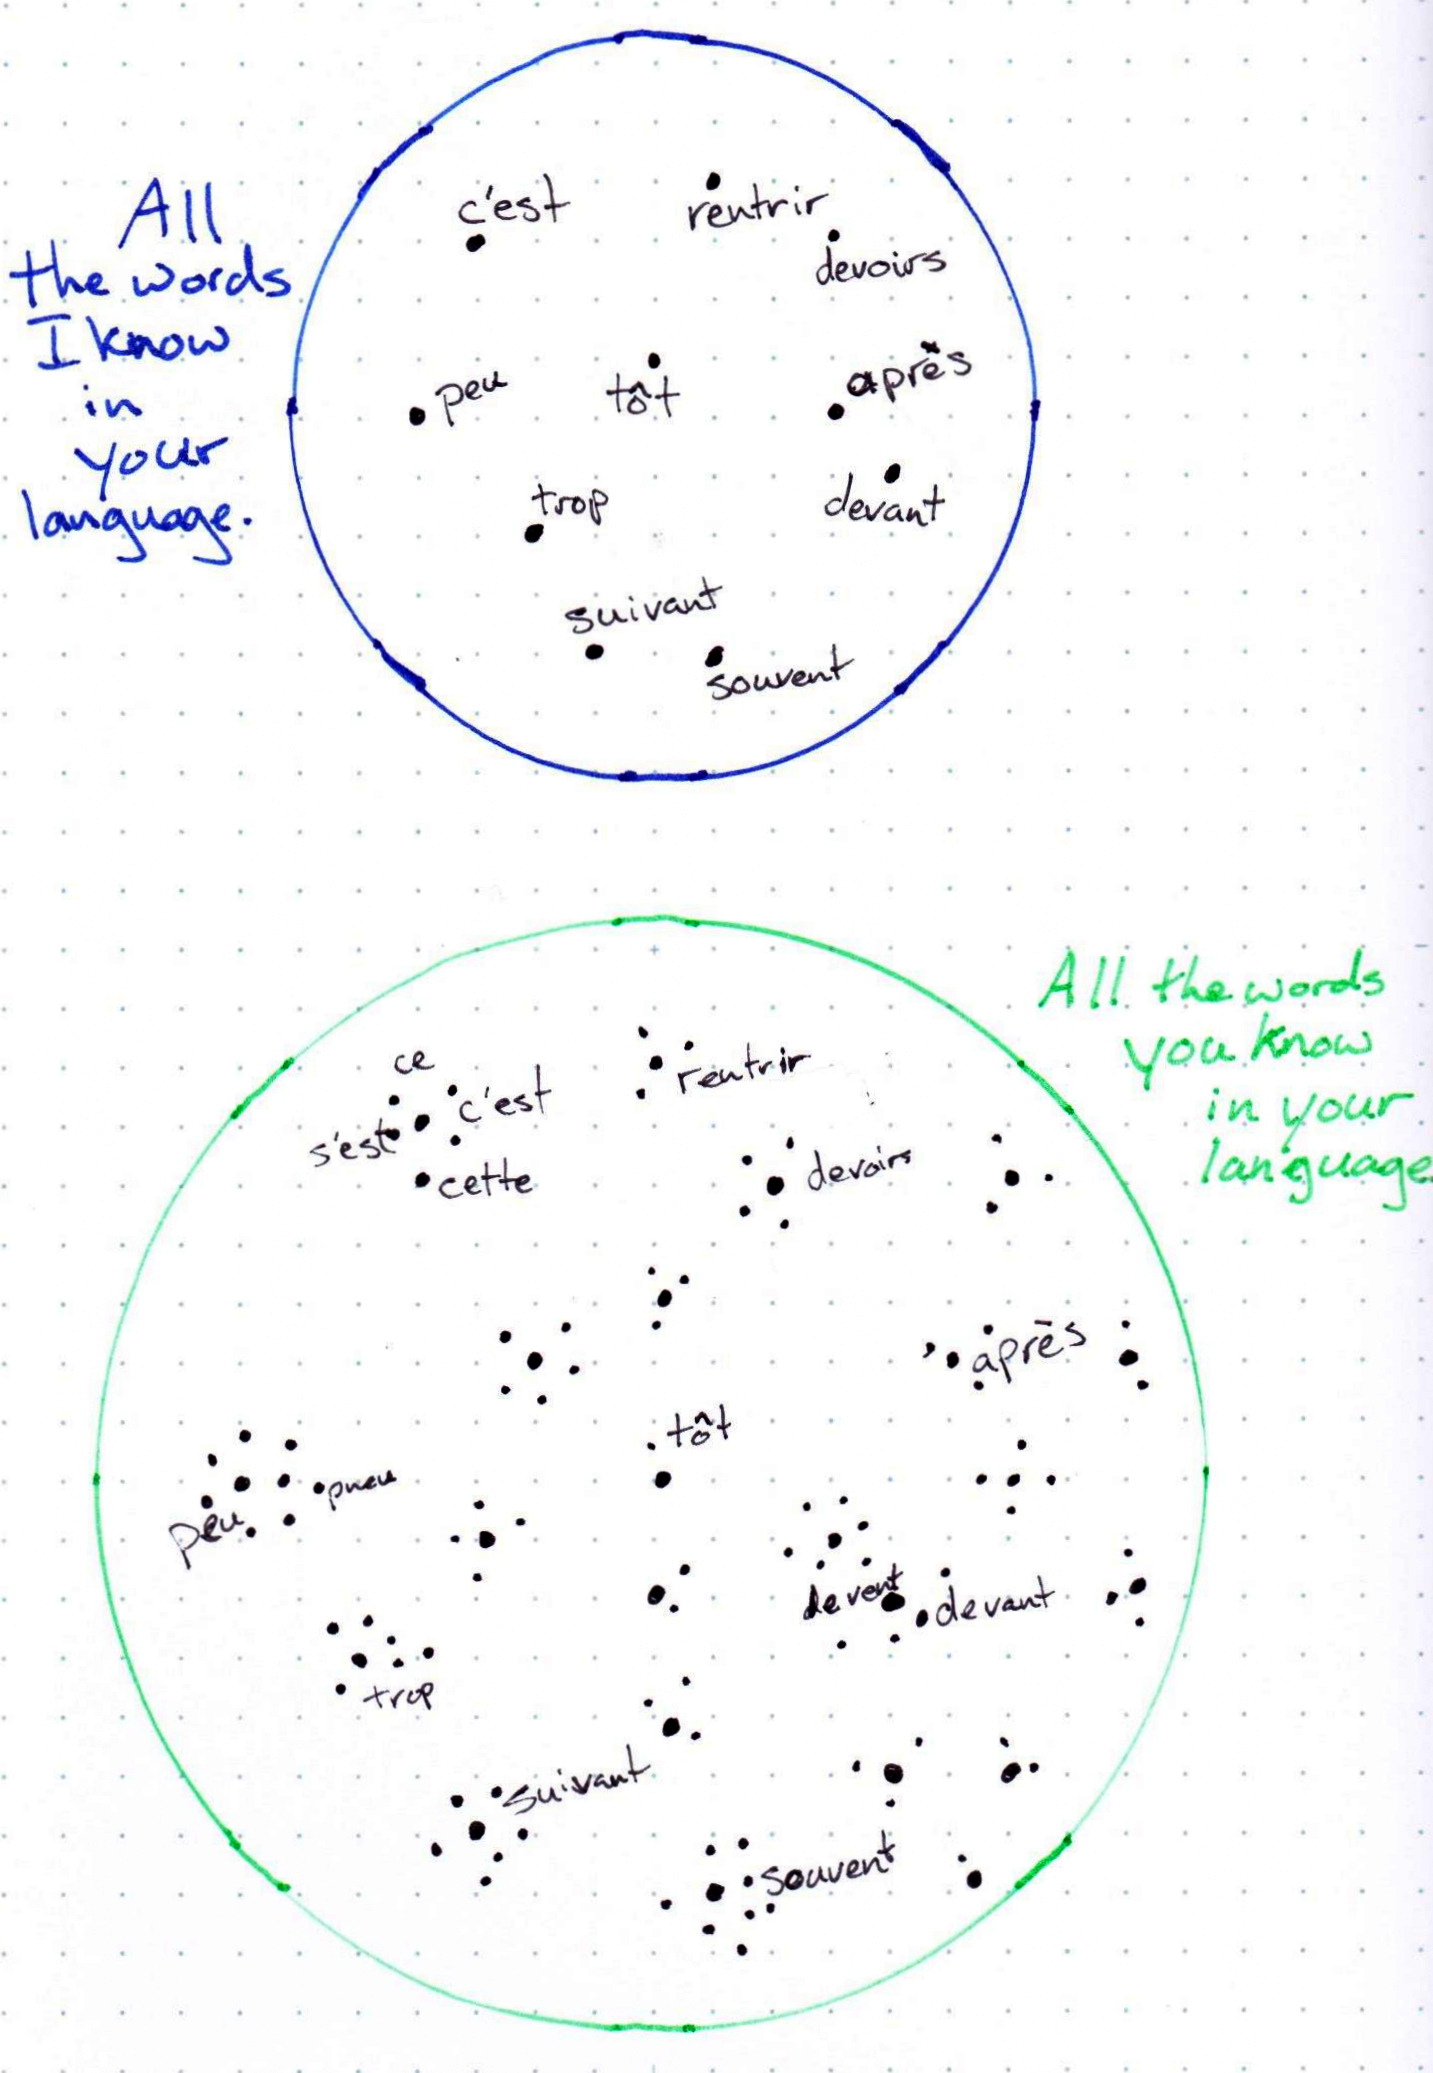 All
the words
I know
in
your
language.
c'est
rentrir
devoirs
peu
tôt
après
trop
devant
suivant
souvent
All the words
you know
in your
language.
ce
c'est
s'est
cette
rentrir
devoirs
après
tôt
peu
pneu
devent
devant
trop
suivant
souvent